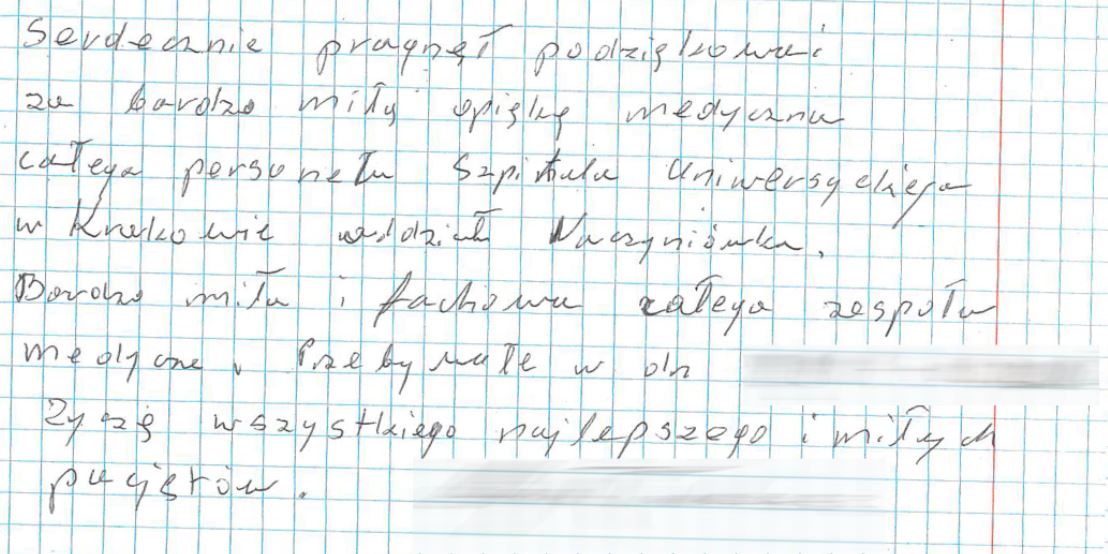 Serdecznie pragnęł podziękować
za bardzo miłą opiekę medyczna
całego personelu Szpitala Uniwersyckiego
w Krakowie oddział Naczyniówka.
Bardzo miła i fachowa całego zespołu
medyczne. Przebywałe w dn
Zyczę wszystkiego najlepszego i miłych
pacjętów.